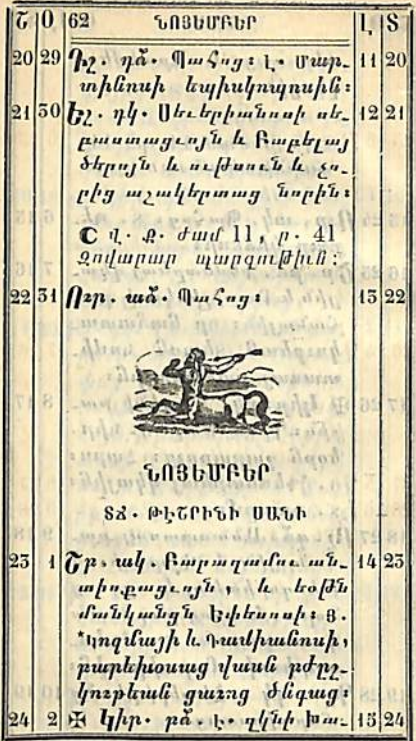 Ը Օ 62 ՆՈՅԵՄԲԵՐ Լ Տ
20 29 Դշ. դձ. Պահոց։ Լ. Մար- 11 20
տինոսի եպիսկոպոսին։
21 30 Եշ. դկ. Սեւերիանոսի սե- 12 21
բաստացւոյն և Բաբելայ
ծերոյն և ութսուն և չո-
րից աշակերտաց նորին։
☾ վ. ք. ժամ 11, ր. 41
Զովարար պարզութիւն։
22 31 Ուր. աձ. Պահոց։ 13 22
ՆՈՅԵՄԲԵՐ
ՏՃ. ԹԷՇՐԻՆԻ ՍԱՆԻ
23 1 Շբ. ակ. Բարաղամու ան- 14 23
տիոքացւոյն, և եօթն
մանկանցն Եփեսոսի։ Յ.
*Կոզմայի և Դամիանոսի,
բարեխօսաց վասն բժըշ-
կութեան ցաւոց ծնգաց։
24 2 ✠ Կիր. բձ. է. զկնի խա- 15 24